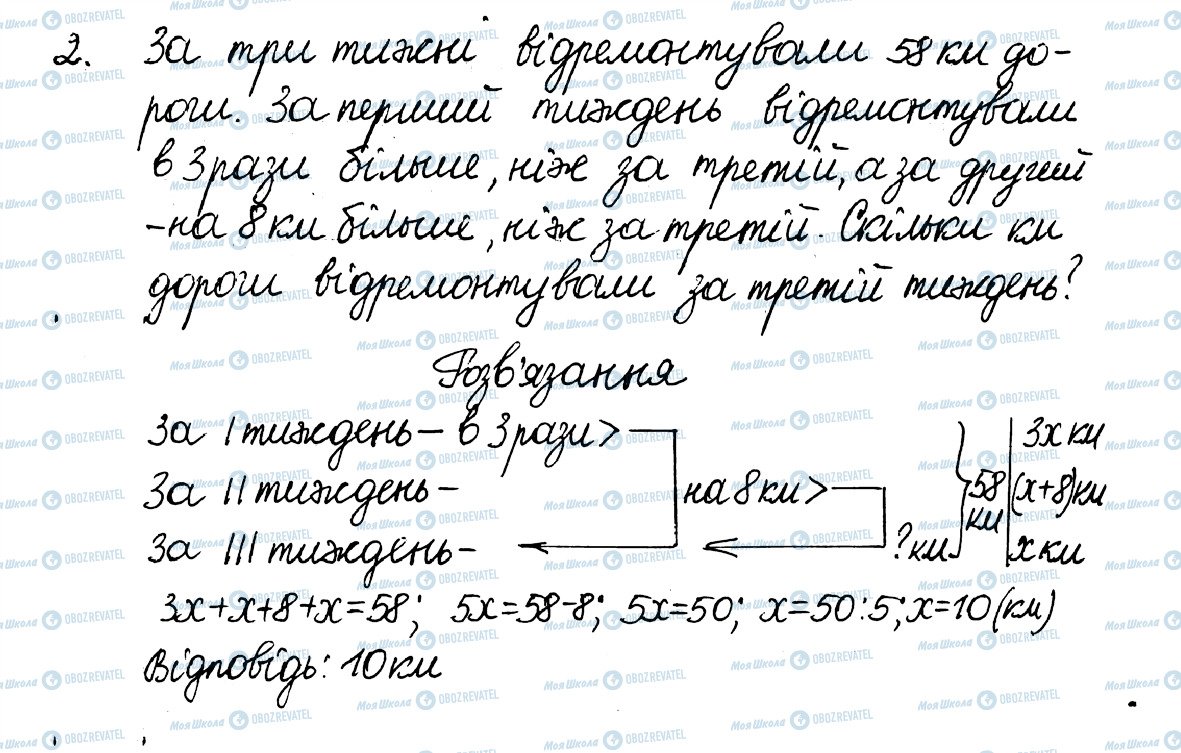 2. За три тижні відремонтували 58 км до-
роги. За перший тиждень відремонтували
в 3 рази більше, ніж за третій, а за другий
- на 8 км більше, ніж за третій. Скільки км
дороги відремонтували за третій тиждень?
Розв'язання
За I тиждень – в 3 рази > 3x км
За II тиждень – на 8 км > 58 км (x+8) км
За III тиждень – ? км x км
3x+x+8+x=58; 5x=58-8; 5x=50; x=50:5; x=10 (км)
Відповідь: 10 км
МояШкола OBOZREVATEL